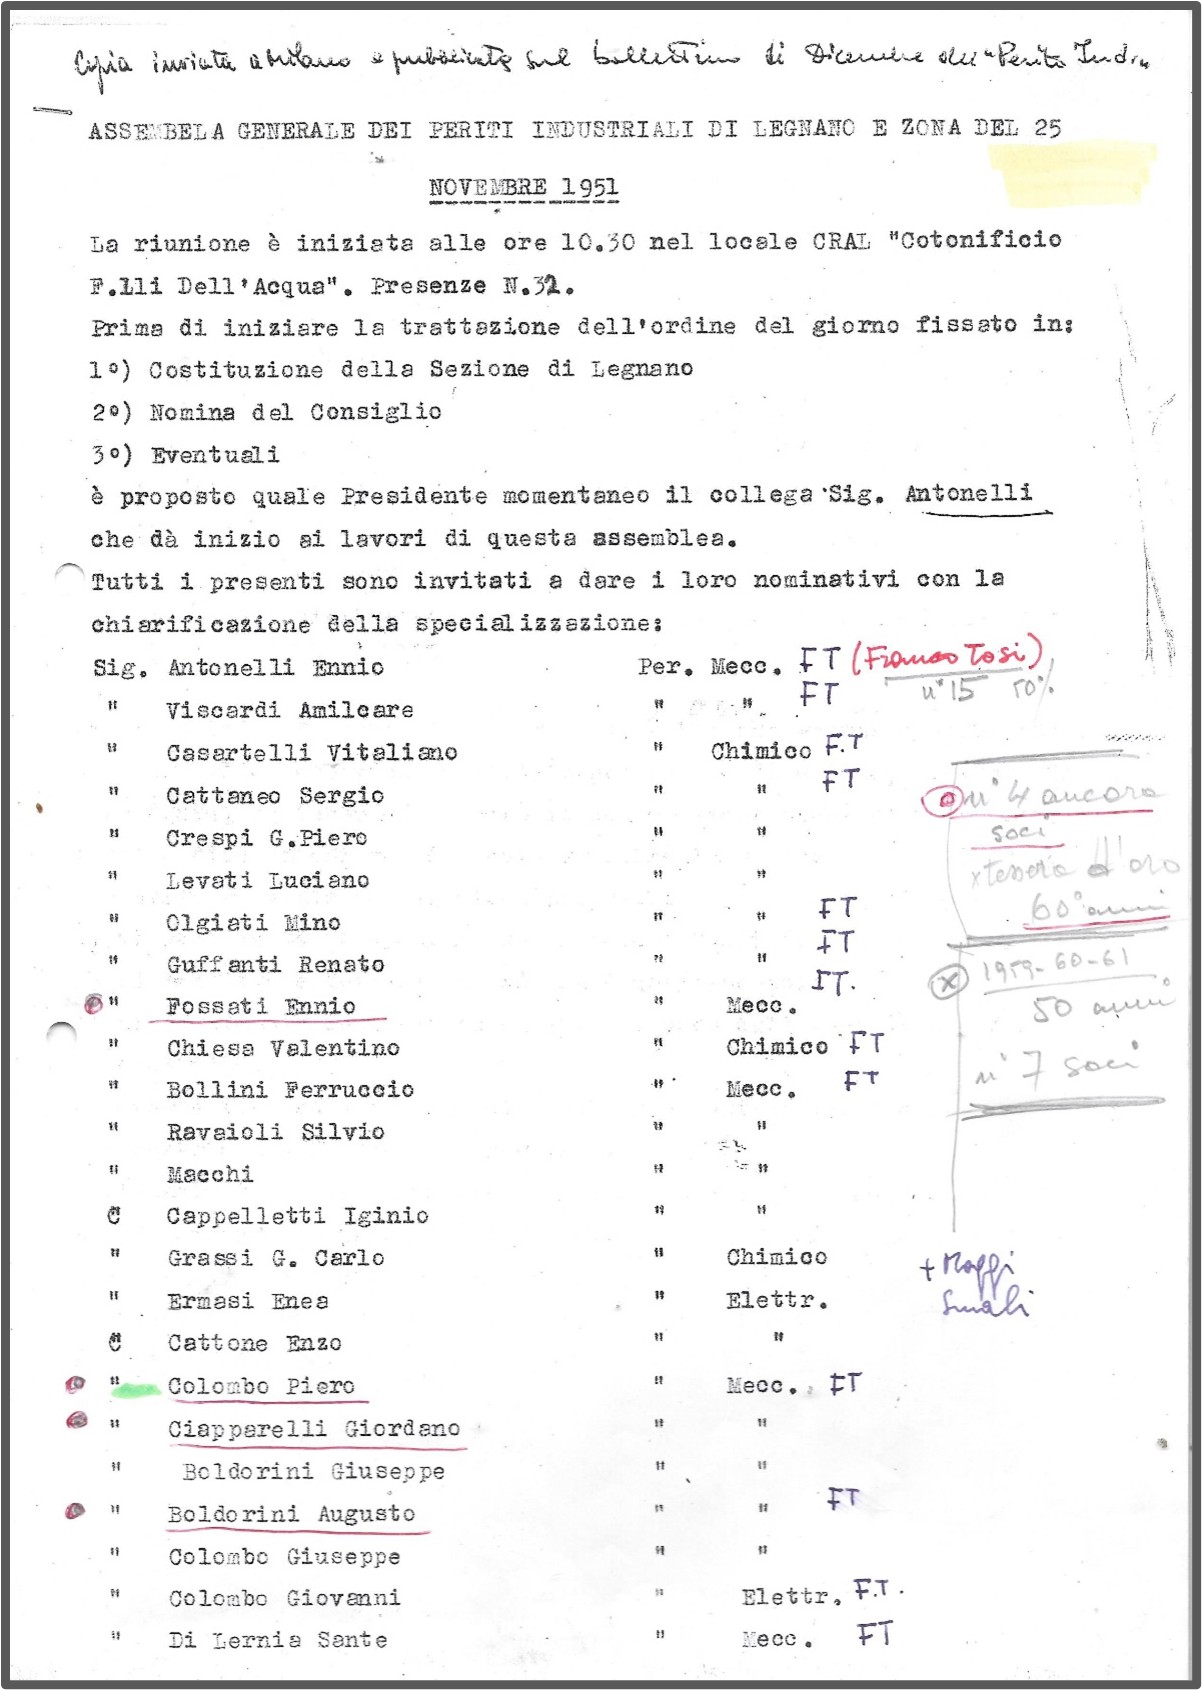 Copia inviata a Milano e pubblicata sul bollettino di Dicembre del "Perito Ind."
ASSEMBELA GENERALE DEI PERITI INDUSTRIALI DI LEGNANO E ZONA DEL 25
NOVEMBRE 1951
La riunione è iniziata alle ore 10.30 nel locale CRAL "Cotonificio
F.lli Dell'Acqua". Presenze N.32.
Prima di iniziare la trattazione dell'ordine del giorno fissato in:
1°) Costituzione della Sezione di Legnano
2°) Nomina del Consiglio
3°) Eventuali
è proposto quale Presidente momentaneo il collega Sig. Antonelli
che dà inizio ai lavori di questa assemblea.
Tutti i presenti sono invitati a dare i loro nominativi con la
chiarificazione della specializzazione:
Sig. Antonelli Ennio Per. Mecc. FT (Franco Tosi)
" Viscardi Amilcare " " FT n° 15 50%
" Casartelli Vitaliano " Chimico F.T
" Cattaneo Sergio " " FT
n° 4 ancora
" Crespi G.Piero " "
soci
" Levati Luciano " "
x tessera d'oro
" Olgiati Mino " " FT
60° anni
" Guffanti Renato " " FT
1959-60-61
" Fossati Ennio " Mecc. FT.
50 anni
" Chiesa Valentino " Chimico FT
n° 7 soci
" Bollini Ferruccio " Mecc. FT
" Ravaioli Silvio " "
" Macchi " "
" Cappelletti Iginio " "
" Grassi G. Carlo " Chimico
+ Maggi
" Ermasi Enea " Elettr.
" Cattone Enzo " "
" Colombo Piero " Mecc. FT
" Ciapparelli Giordano " "
" Boldorini Giuseppe " "
" Boldorini Augusto " " FT
" Colombo Giuseppe " "
" Colombo Giovanni " Elettr. F.T.
" Di Lernia Sante " Mecc. FT